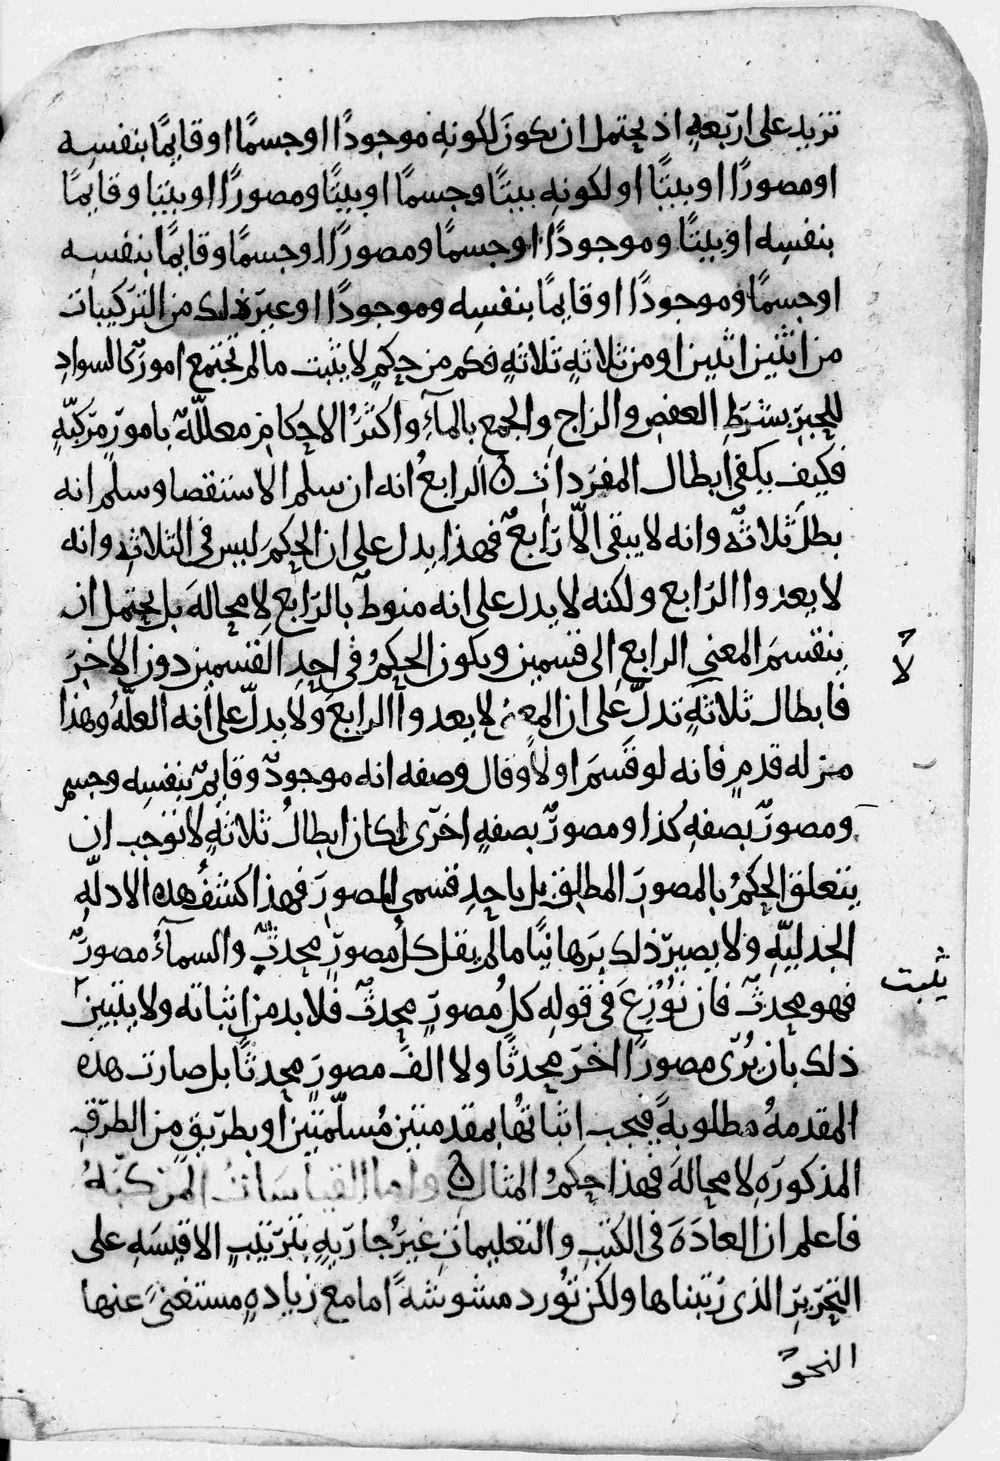 تزيد على اربعةٍ اذ يحتمل ان يكونَ لكونهِ موجودًا او جسمًا او قايمًا بنفسِه
او مصورًا او بيتًا او لكونه بيتًا وجسمًا او بيتًا ومصورًا او بيتا وقايمًا
بنفسِه او بيتًا وموجودًا او جسمًا ومصورًا او جسمًا وقايمًا بنفسِه
او جسمًا وموجودًا او قايمًا بنفسِه وموجودًا او غيرَ ذلك من التركيبات
من اثنين اثنين او من ثلاثةٍ ثلاثةٍ فكم من حكمٍ لا يثبت ما لم تجتمع امورٌ كالسوادِ
للحبرِ بشرطِ العفصِ والزاج والجمع بالمآءِ واكثرُ الاحكام معللةٌ بامورٍ مركبّةٍ
فكيف يكفى ابطال المفردات ۞ الرابعُ انه ان سلم الاستقصا وسلم انه
بطلَ ثلاثةٌ وانه لا يبقى الّا رابعٌ فهذا يدل على ان الحكمَ ليس فى الثلاثةِ وانه
لا يعدوا الرّابع ولكنه لا يدل على انه منوطٌ بالرّابع لا محالةَ بل يحتمل ان
ينقسمَ المعنى الرابع الى قسمين ويكون الحكمُ فى احدِ القسمين دون الاخرَ
فابطال ثلاثةٍ تدلّ على ان المعنى لا يعدوا الرابعَ ولا يدلّ على انه العلّهُ وهذا
مزله قدمٍ فانه لو قَسمَ اولًا وقال وصفه انه موجودٌ وقايمٌ بنفسِه وجسم
ومصورٌ بصفهِ كذا ومصورٌ بصفهٍ اخرى لكان ابطالُ ثلاثةٍ لا توجب ان
يتعلق الحكمُ بالمصورَ المطلق بل باحدِ قسمى المصورَ فهذا كشفُ هذه الادلّهِ
الجدليّهِ ولا يصيرُ ذلك بَرهانيًا ما لم يقل كلُ مصورٍ محدثٌ والسمآءُ مصورٌ
فهو محدثٌ فان نُوزعَ فى قولهِ كلُ مُصورٍ محدثٌ فلا بد من اثباته ولا يتبين
ذلك بان يُرى مصورًا اخرَ محدثًا ولا الفُ مصورٍ محدثًا بل صارت هذه
المقدمهُ مطلوبهً فيجب اثباتُها بمقدمتين مُسلّمتين او بطريقٍ من الطرقِ
المذكورَهِ لا محالةَ فهذا حكمُ المثال ۞ واما القياسَات المركّبهُ
فاعلم ان العادَةَ فى الكُتبِ والتعليمات غيرُ جاريهٍ بترتيبِ الاقيسَهِ على
التحريرِ الذى رتبناها ولكن تُورد مشوشهً اما مع زيادهٍ مستغنىً عنها
النحو
لا
يثبت